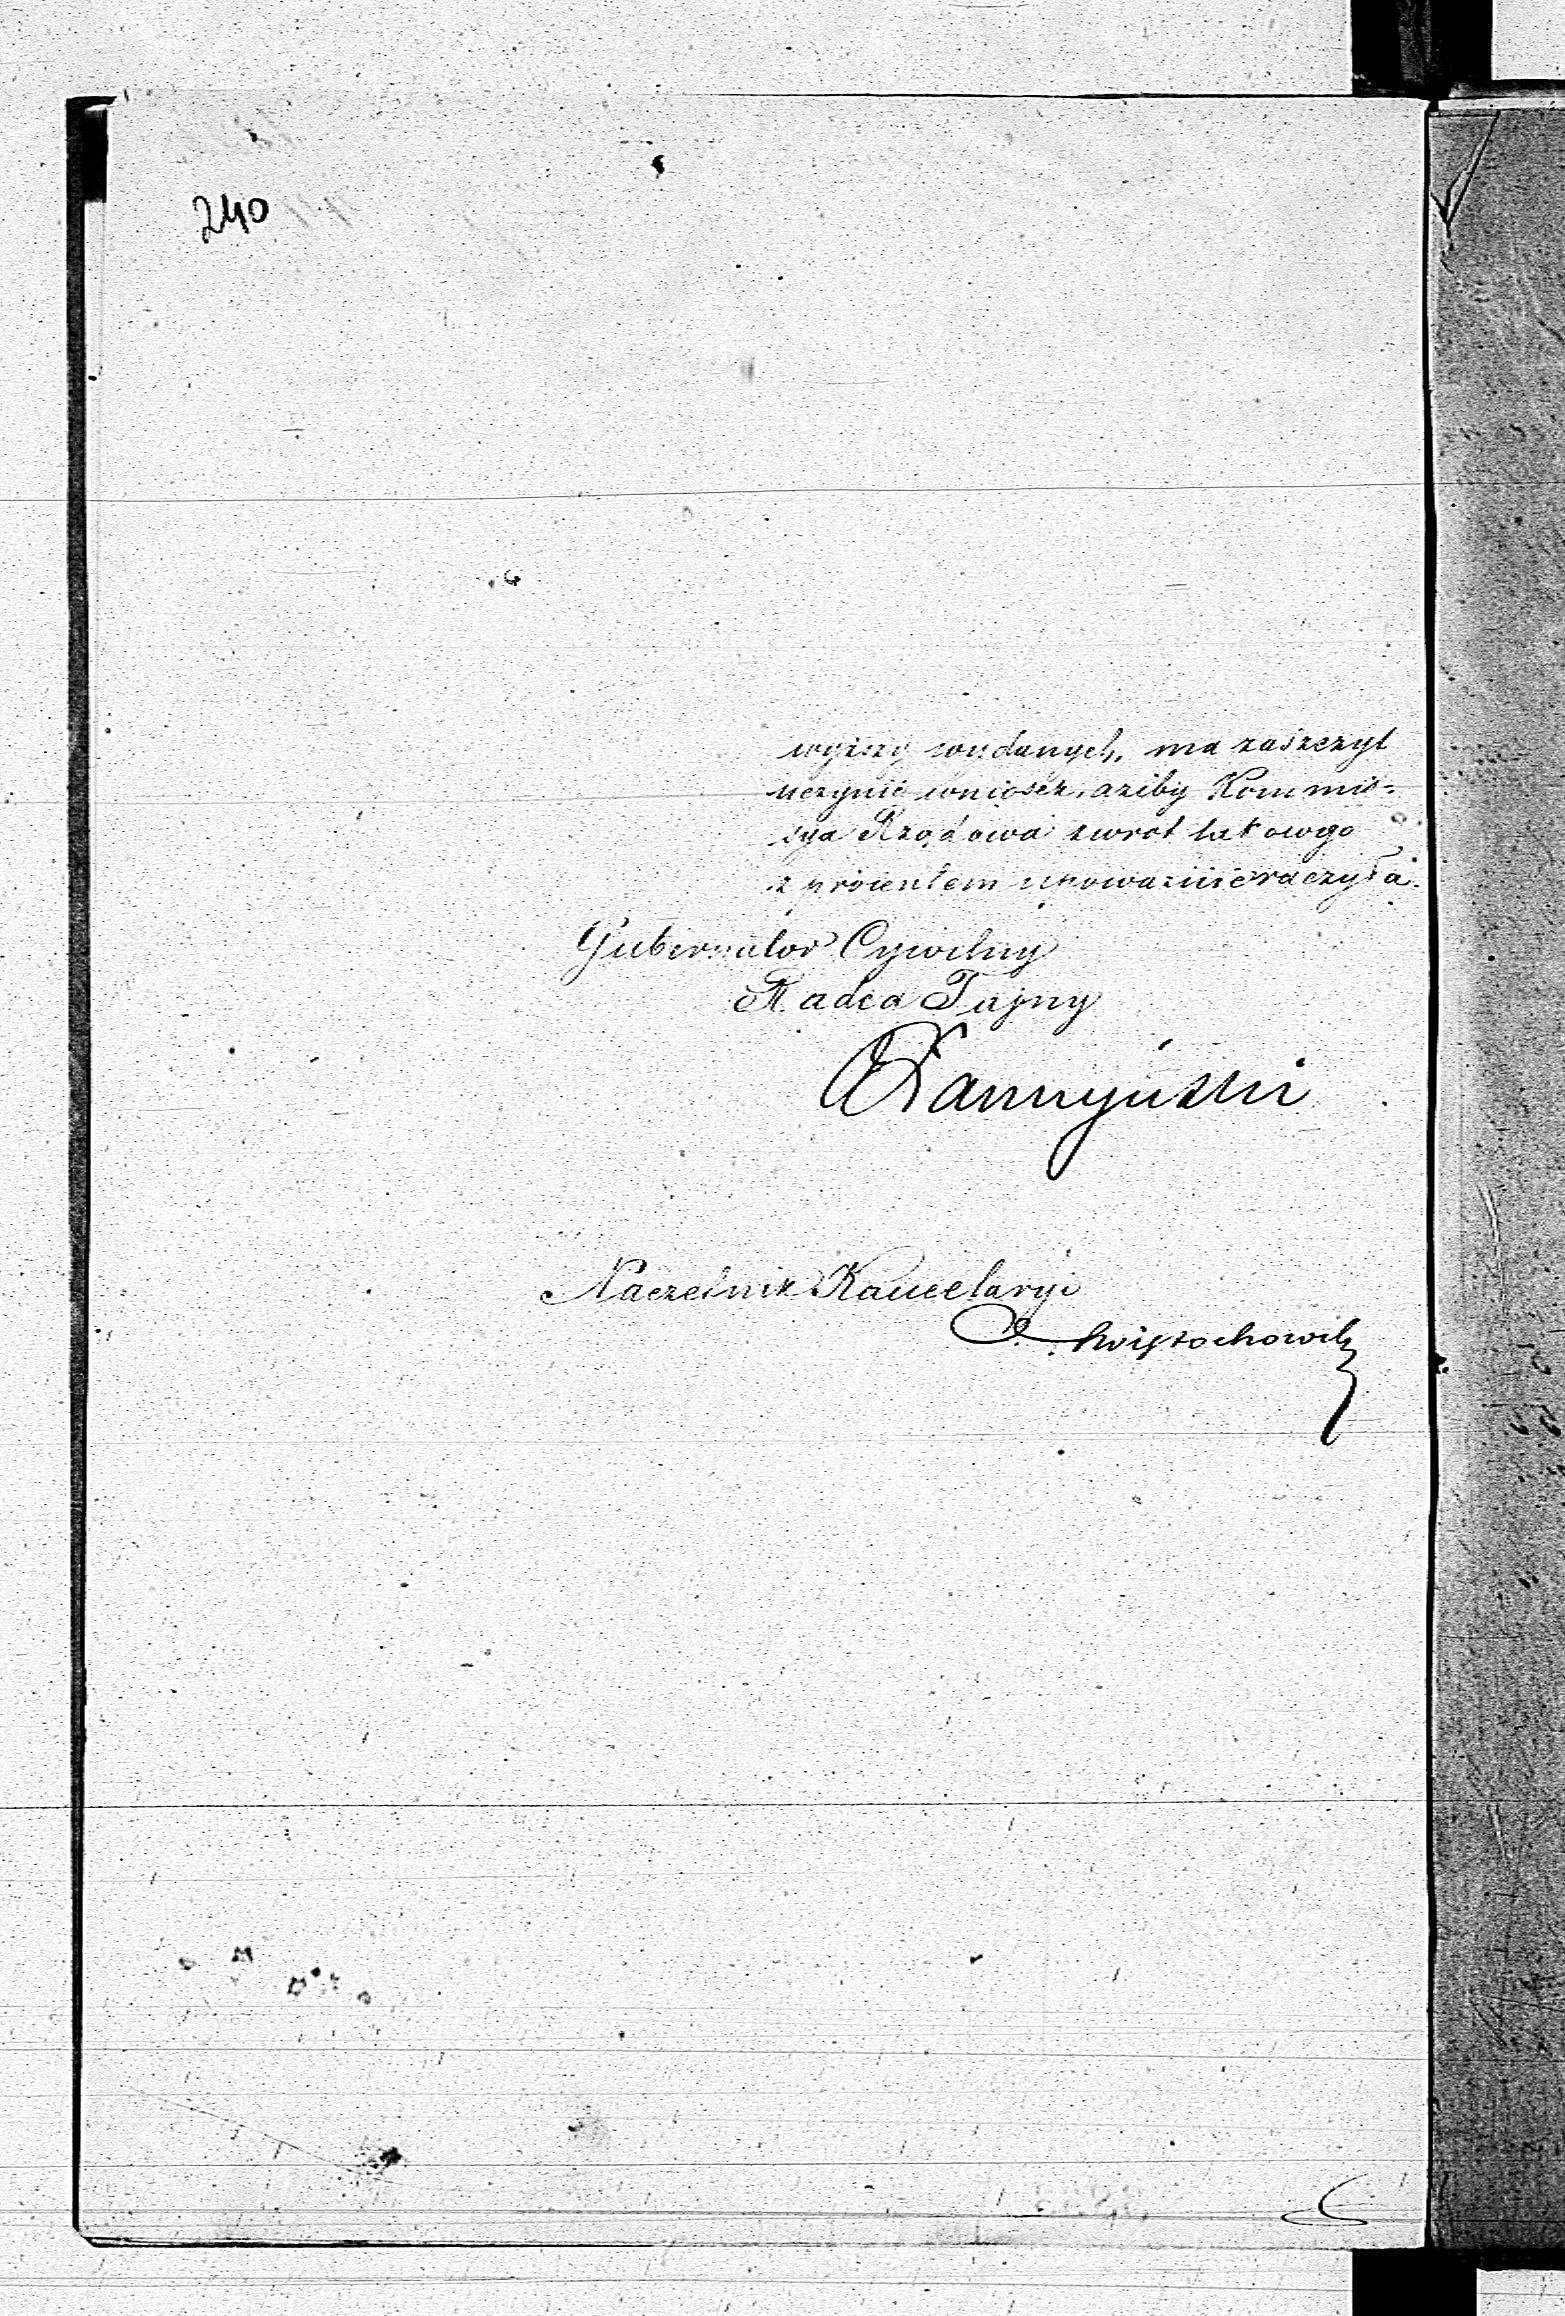 240
wyższy wydanych, ma zaszczyt
uczynić wniosek, ażiby Kommis=
sya Rządowa zwrot takowego
z procentem upoważnić raczyła.
Gubernator Cywilny
Radca Tajny
Naczelnik Kancelaryi